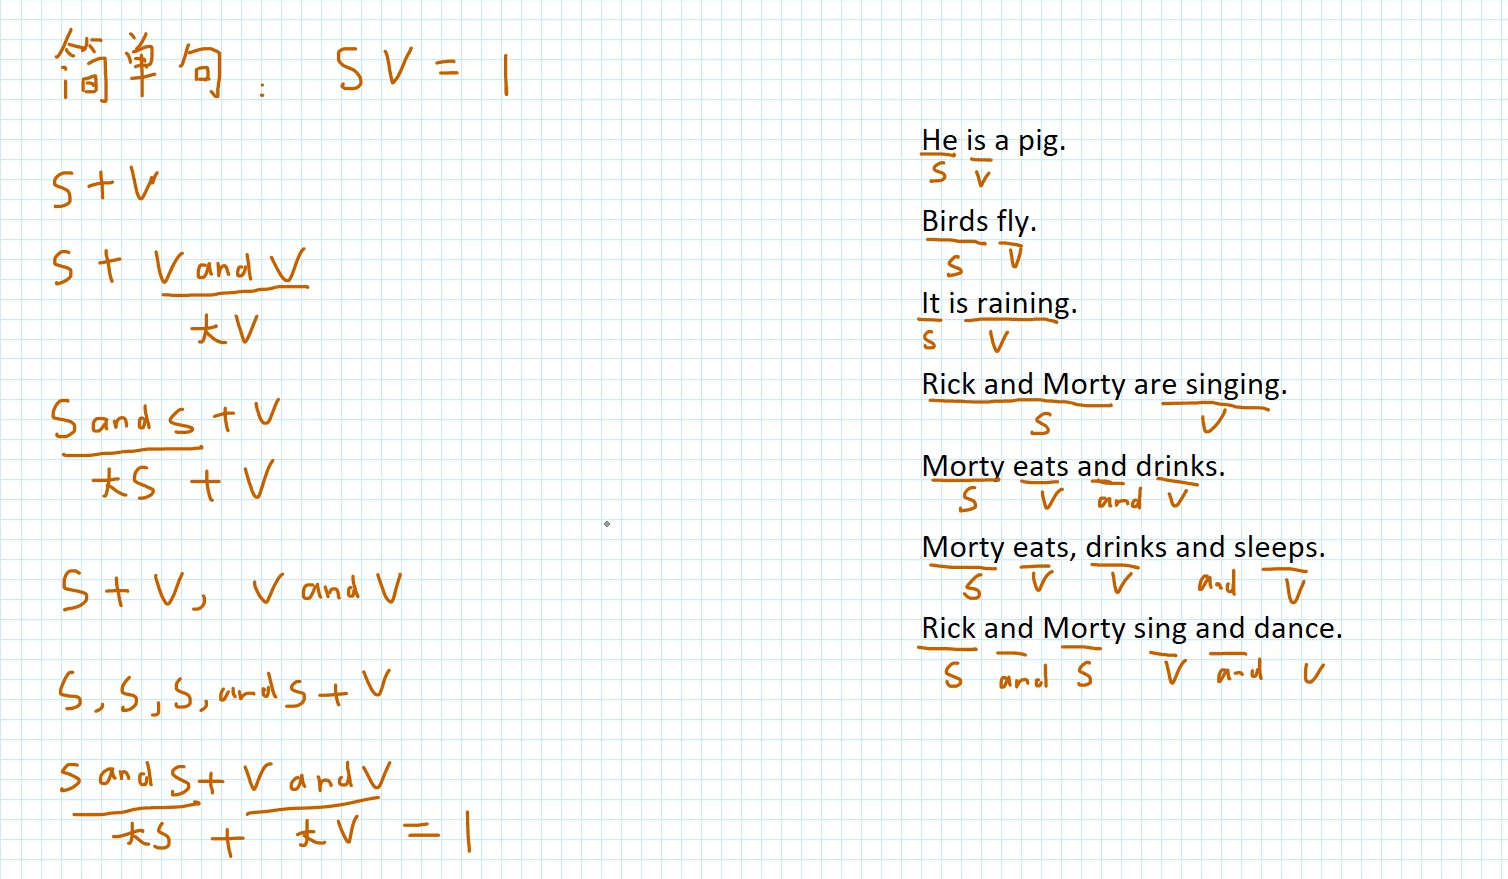 简单句： SV = 1
S + V
S + V and V
大V
S and S + V
大S + V
S + V, V and V
S, S, S, and S + V
S and S + V and V
大S + 大V = 1
He is a pig.
S V
Birds fly.
S V
It is raining.
S V
Rick and Morty are singing.
S V
Morty eats and drinks.
S V and V
Morty eats, drinks and sleeps.
S V V and V
Rick and Morty sing and dance.
S and S V and V